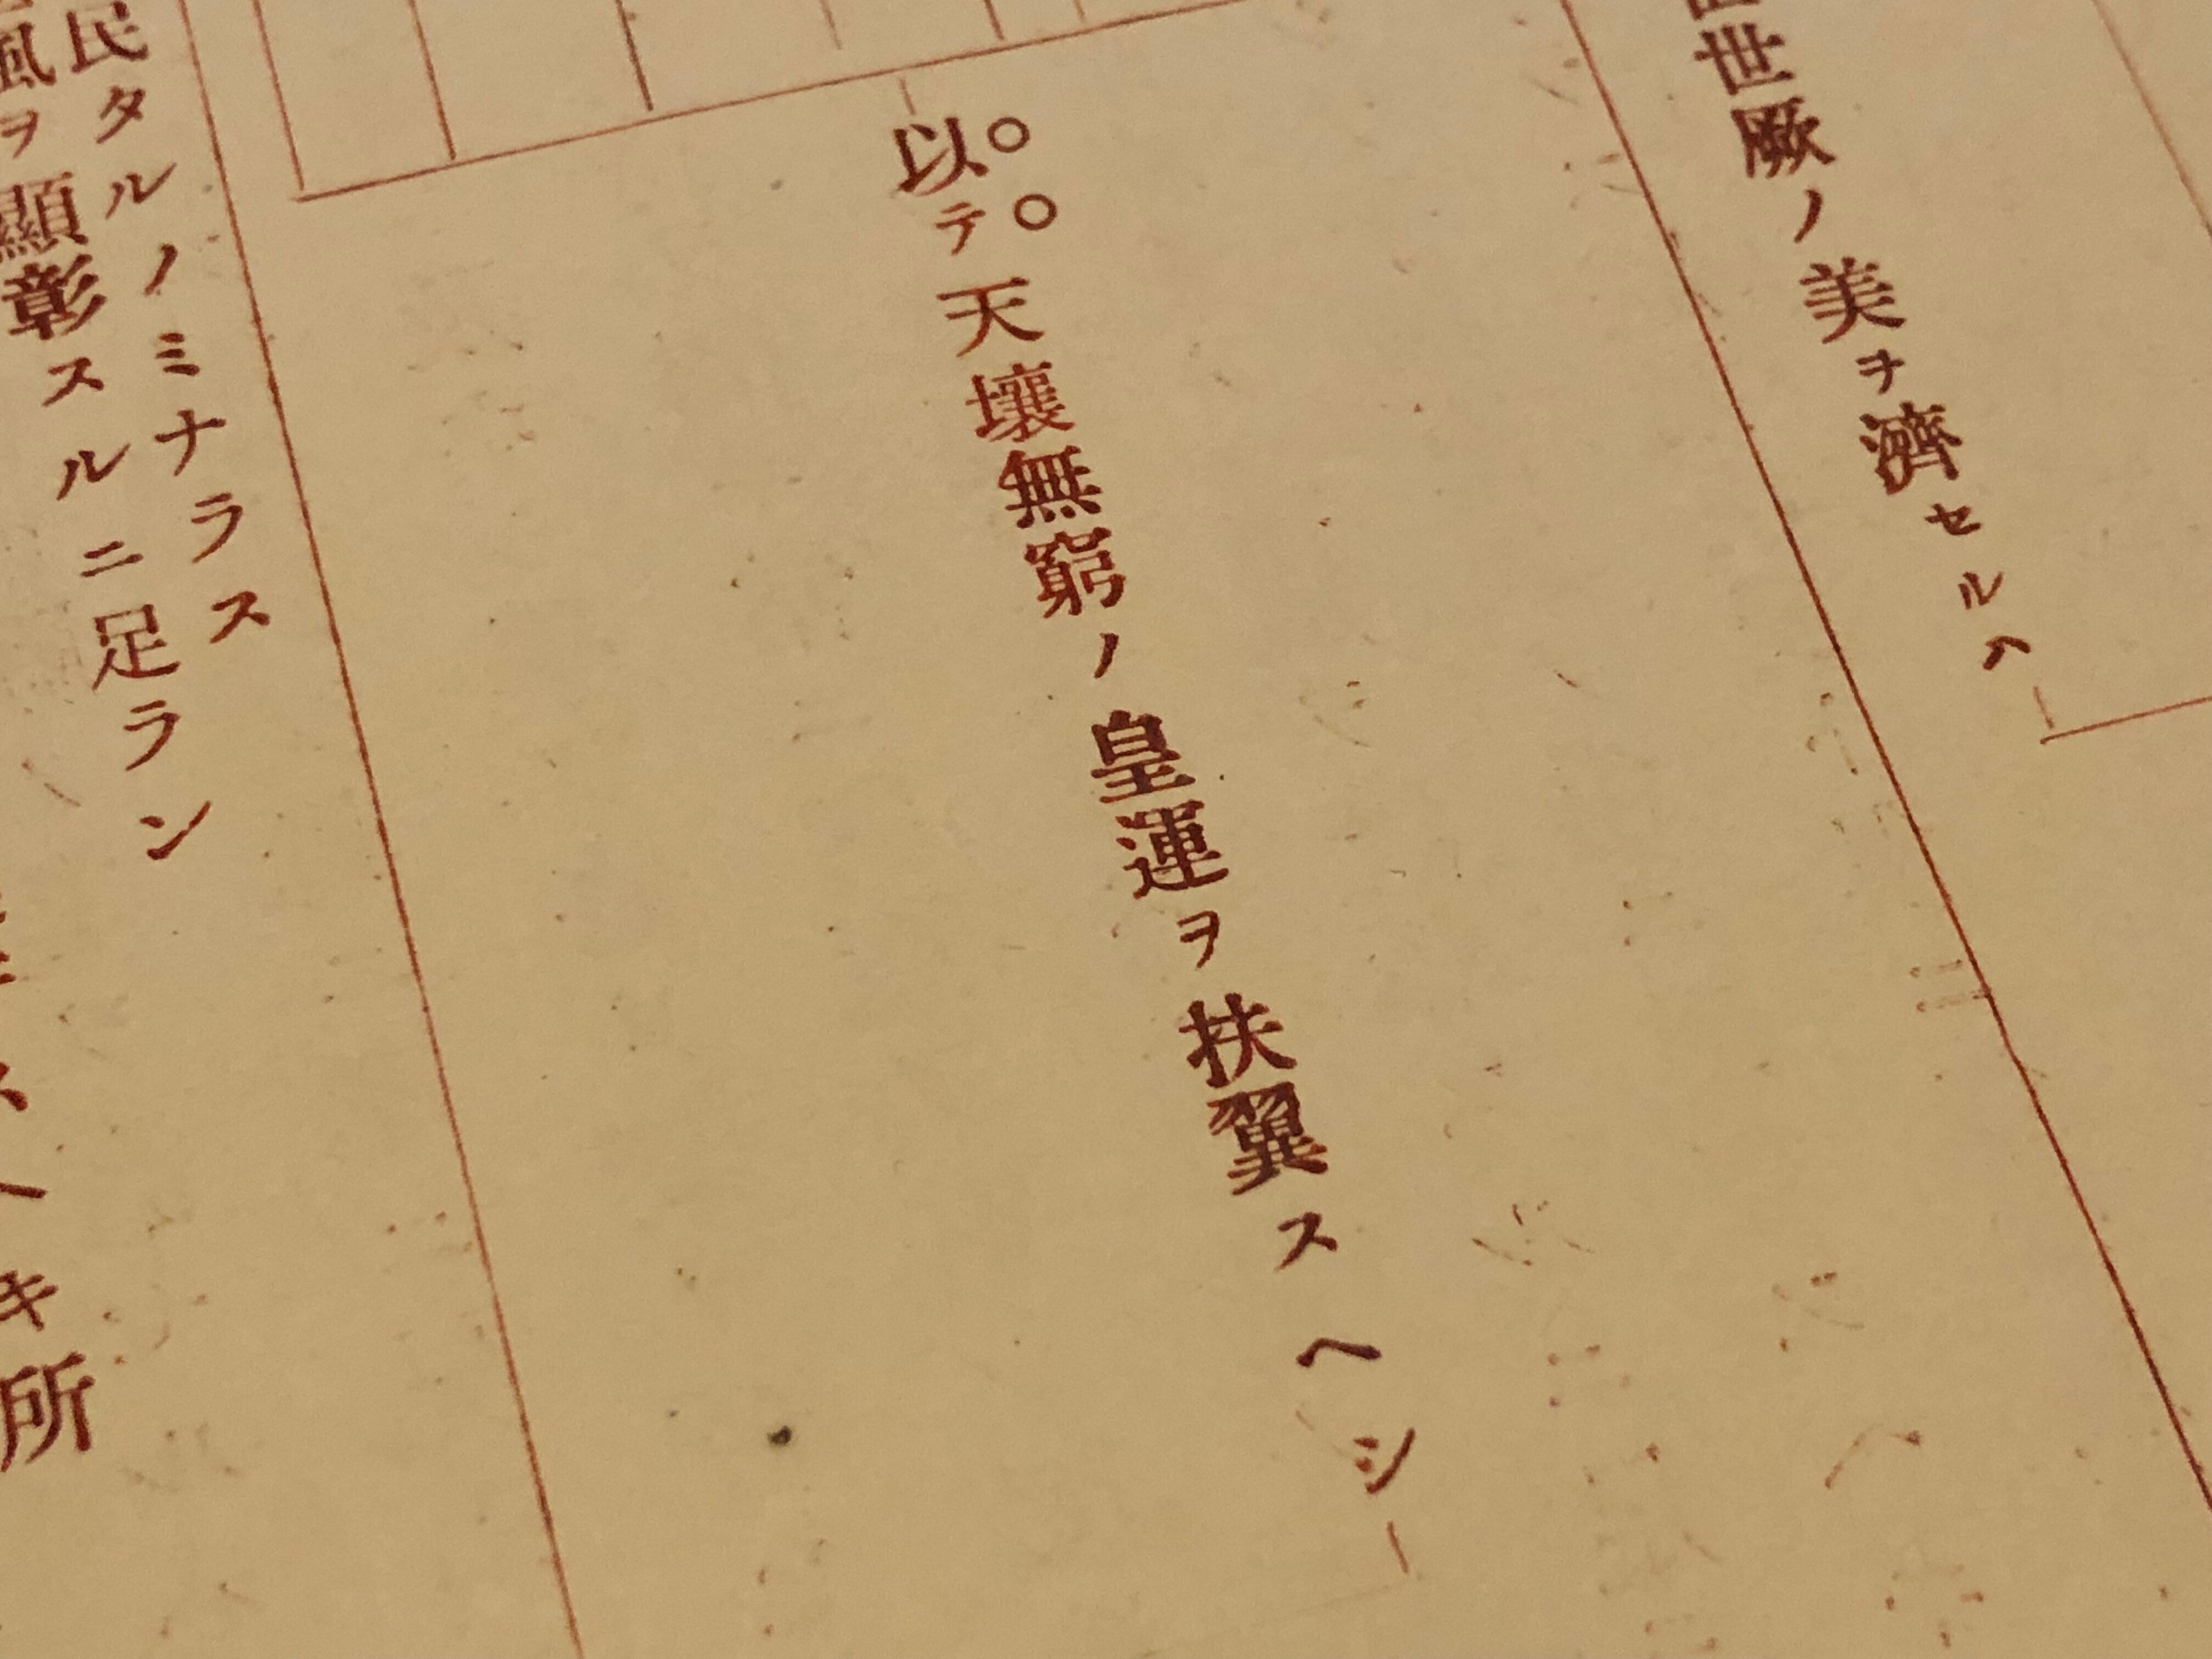 世厥ノ美ヲ濟セルハ
○○
以テ天壤無窮ノ皇運ヲ扶翼スヘシ
民タルノミナラス
風ヲ顯彰スルニ足ラン
スヘキ所